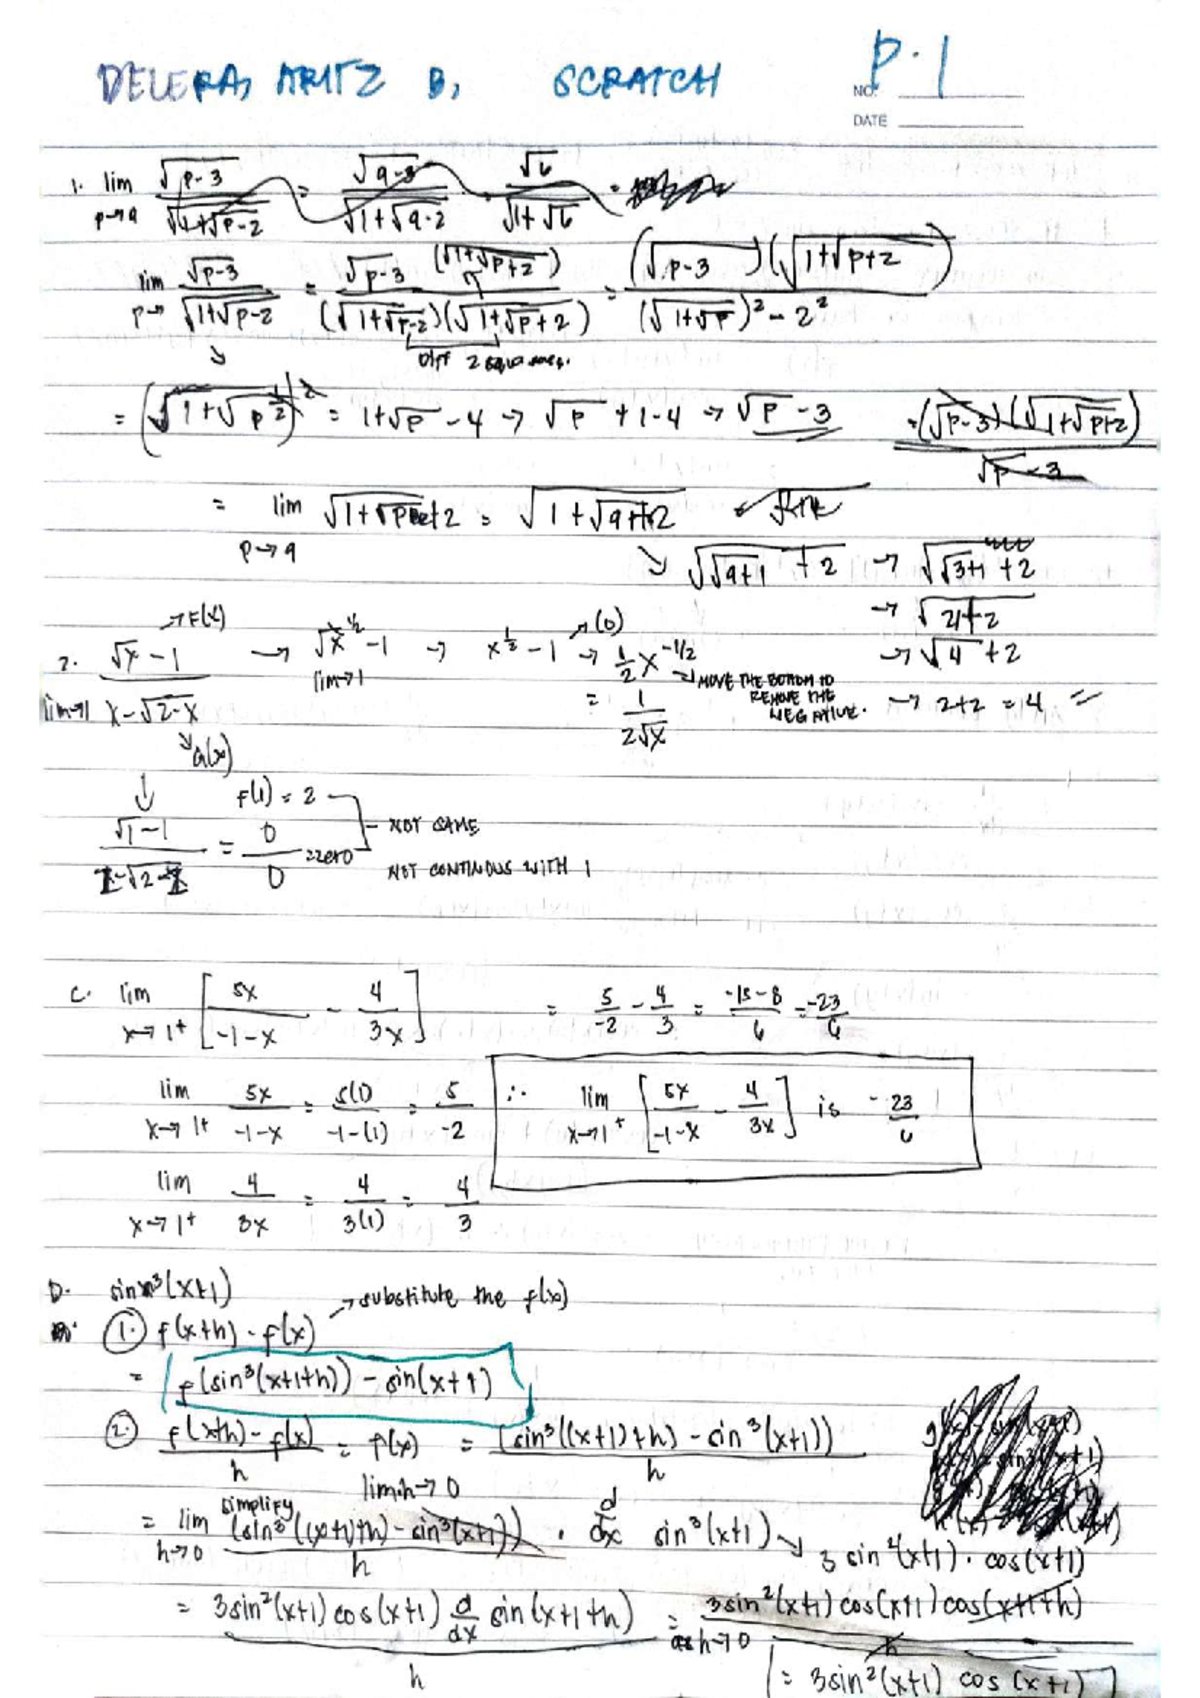 DELERA, ARITZ B. SCRATCH P. 1
NO.
DATE
1. lim p→9 √p-3 / √1+√p-2 = √9-3 / √1+√9-2 = √6 / √1+√6 =
lim p→ √p-3 / √1+√p-2 = √p-3 (√1+√p+2) / (√1+√p-2)(√1+√p+2) = (√p-3)(√1+√p+2) / (√1+√p)² - 2²
Diff 2 squares.
= (√1+√p ½)² = 1+√p - 4 → √p + 1-4 → √p - 3 = (√p-3)(√1+√p+2) / √p-3
= lim p→9 √1+√p+2 = √1+√9+2
↘ √√9+1 + 2 → √√3+1 + 2
→F(x) → √2+2
2. √x - 1 → √x ½ - 1 → x½ - 1 →(0) → ½x -1/2 → √4 + 2
lim→1 x-√2-x lim→1 = 1 / 2√x ↘MOVE THE BOTTOM TO REMOVE THE NEGATIVE. → 2+2 = 4 =
↘G(x)
↓ F(1) = 2
√1-1 / 1-√2-1 = 0/0 = zero NOT SAME
NOT CONTINOUS WITH 1
C. lim x→1+ [5x / -1-x - 4 / 3x] = 5/-2 - 4/3 = -15-8 / 6 = -23/6
lim x→1+ 5x / -1-x = 5(1) / -1-(1) = 5 / -2 ∴ lim x→1+ [5x / -1-x - 4 / 3x] is -23/6
lim x→1+ 4 / 3x = 4 / 3(1) = 4 / 3
D. sin³(x+1) →substitute the f(x)
1. f(x+h) - f(x)
= f(sin³(x+1+h)) - sin(x+1)
2. f(x+h) - f(x) / h = f(x) lim h→0 = (sin³((x+1)+h) - sin³(x+1)) / h
simplify
= lim h→0 (sin³((x+1)+h) - sin³(x+1)) / h · d/dx sin³(x+1) ↘ 3 sin²(x+1) · cos(x+1)
= 3sin²(x+1) cos(x+1) d/dx sin(x+1+h) / h = as h→0 3sin²(x+1) cos(x+1) cos(x+1+h) / h
= 3sin²(x+1) cos(x+1)